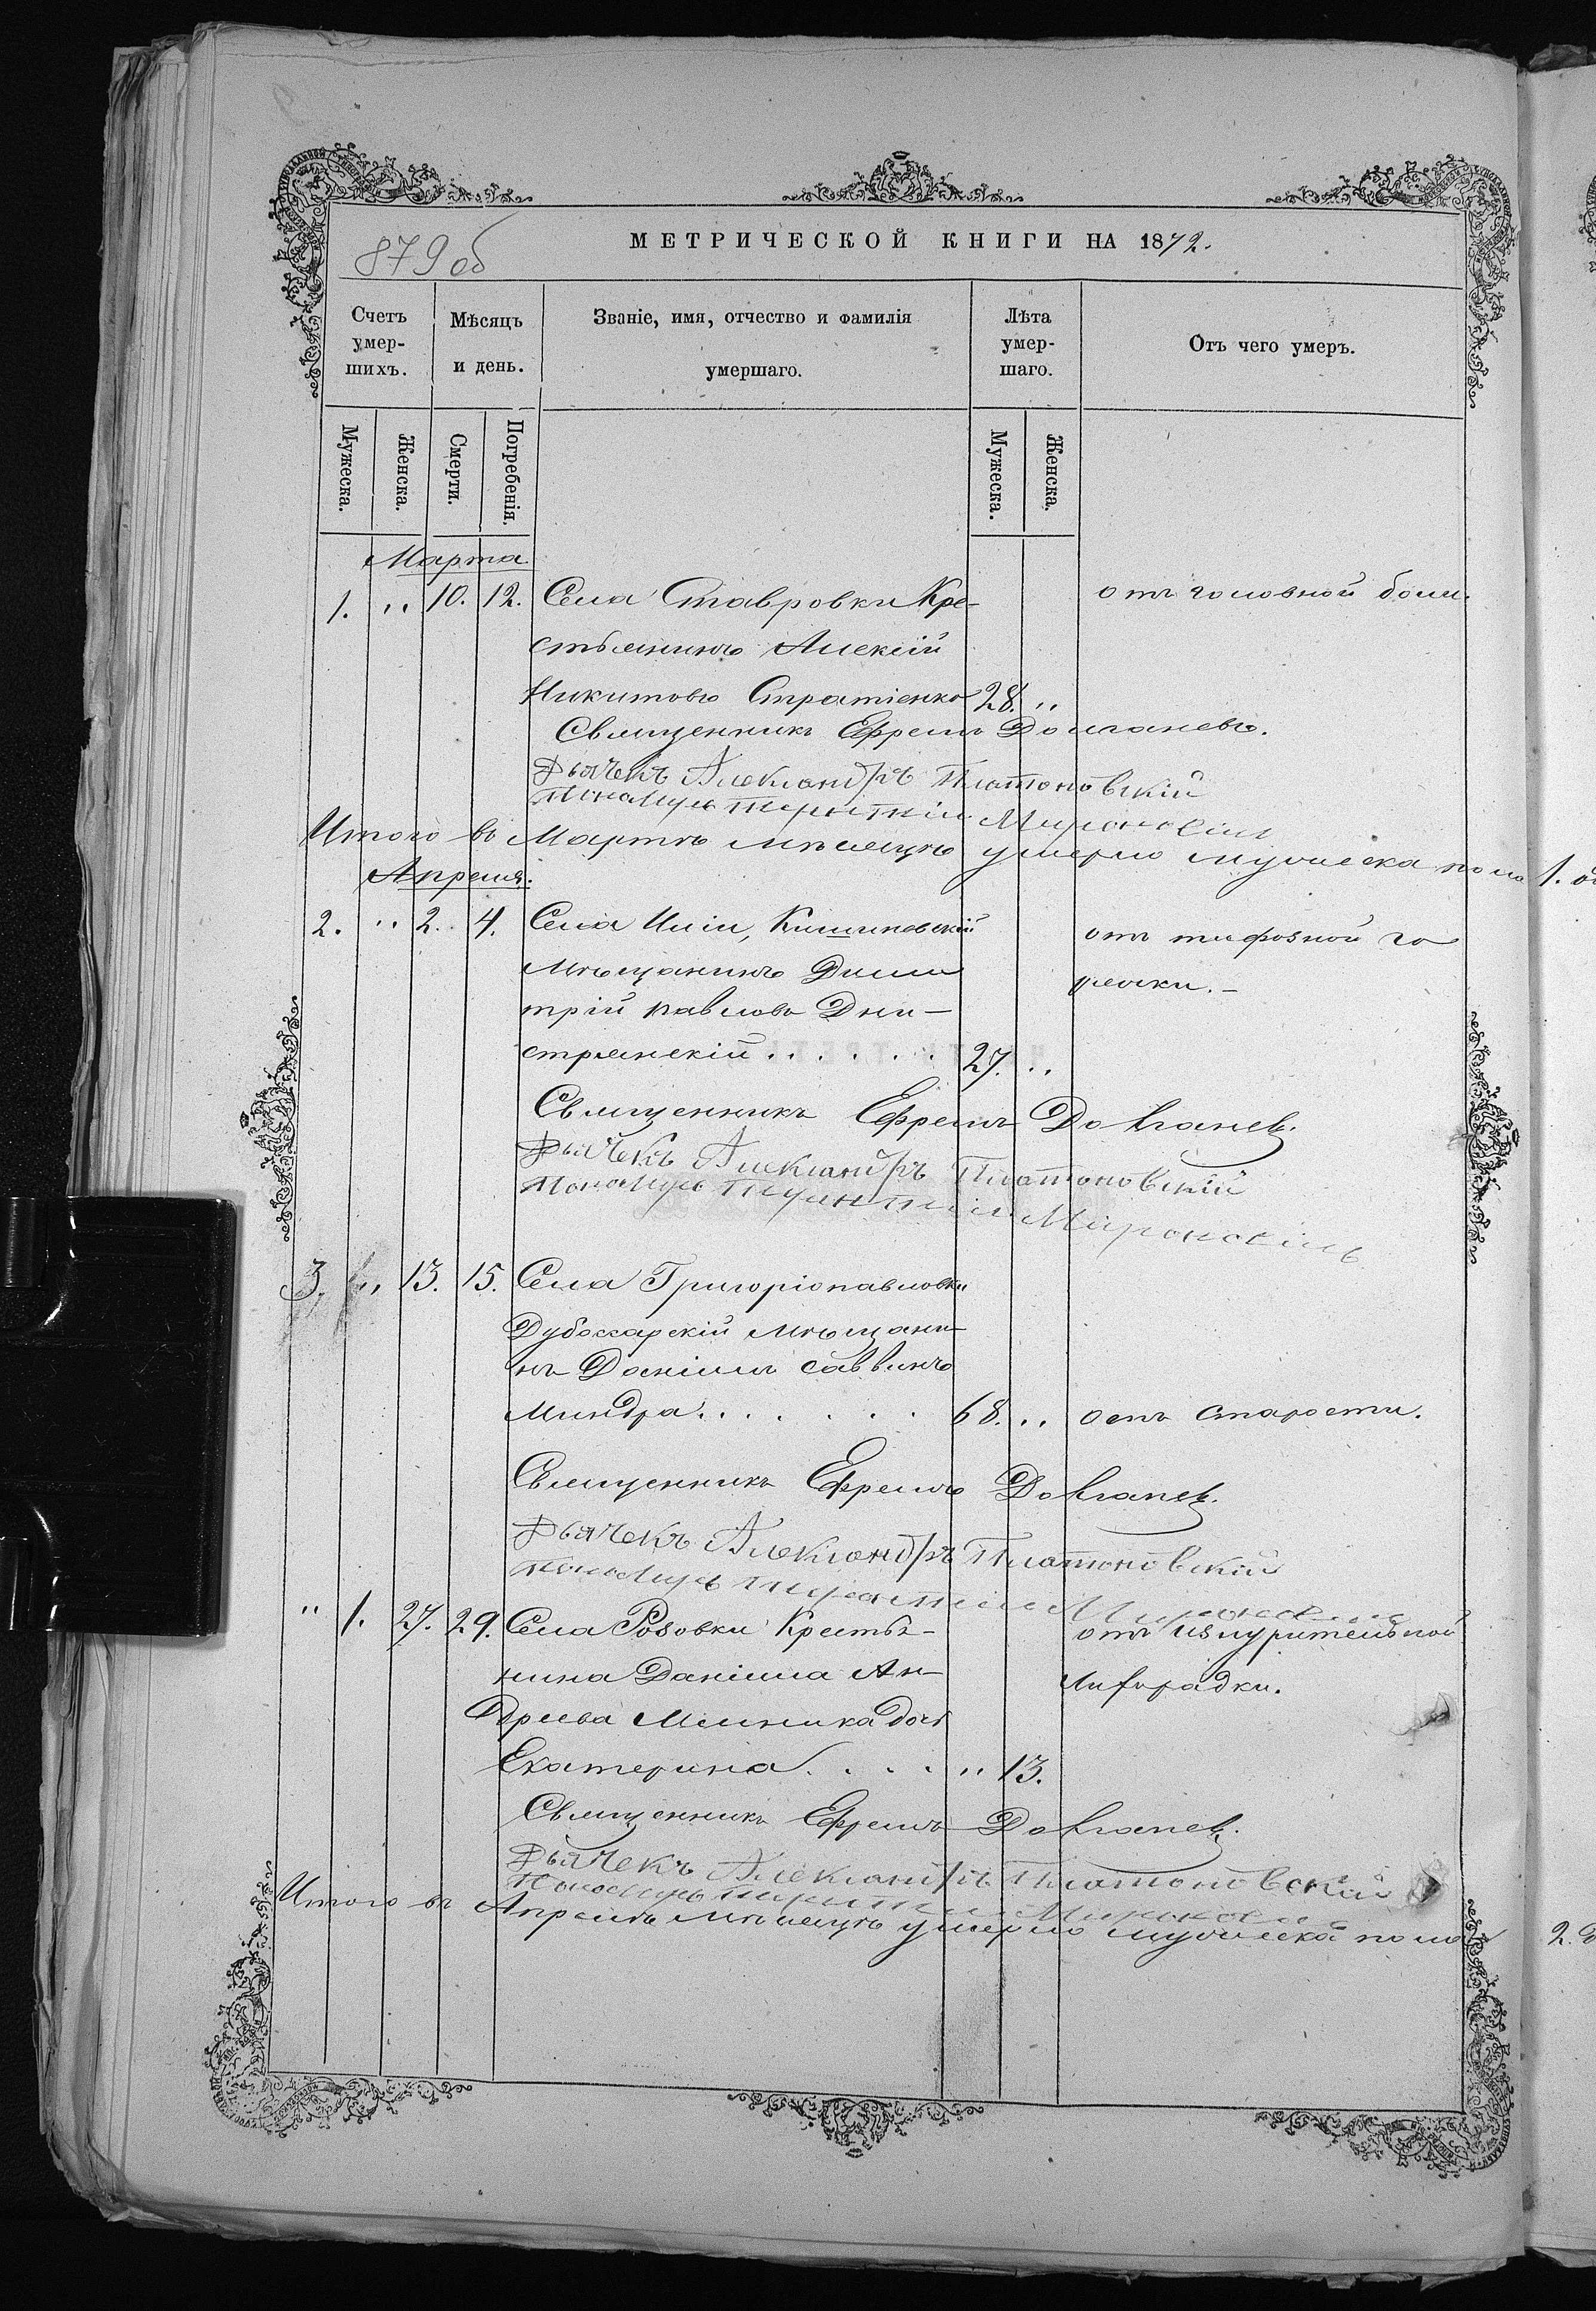 879 об
МЕТРИЧЕСКОЙ КНИГИ НА 1872.
Счетъ умер-шихъ.
Мѣсяцъ и день.
Званіе, имя, отчество и фамилія умершаго.
Лѣта умер-шаго.
Отъ чего умеръ.
Мужеска.
Женска.
Смерти.
Погребенія.
Мужеска.
Женска.
Марта
1. „ 10. 12. Села Ставровки Кре- отъ головной боли.
стьянинъ Алексій
Никитовъ Стратіенко 28. „
Священникъ Ефремъ Долганевъ.
Дьячекъ Александръ Платоновскій
Пономарь Терентій
Итого въ Мартѣ мѣсяцѣ умерло мужеска пола 1.
Апреля.
2. „ 2. 4. Села Иліи, Кишиневскій отъ тифозной го
Мѣщанинъ Дими рячки.-
трій Павловъ Дни-
стрянскій...... 27. „
Священникъ Ефремъ Долганевъ
Дьячекъ Александръ Платоновскій
Пономарь Терентій
3. „ 13. 15. Села Григоріопавловки
Дубоссарскій мѣщани-
нъ Даніилъ Саввинъ
Миндра....... 68. „ отъ старости.
Священникъ Ефремъ Долганевъ
Дьячекъ Александръ Платоновскій
Пономарь Терентій
„ 1. 27. 29. Села Розовки Крестья- отъ изнурительной
нина Даніила Ан- лихорадки.
дреева Мельника дочь
Екатерина..... „ 13.
Священникъ Ефремъ Долганевъ.
Дьячекъ Александръ Платоновскій
Пономарь Терентій
Итого въ Апрелѣ мѣсяцѣ умерло мужеска пола 2.